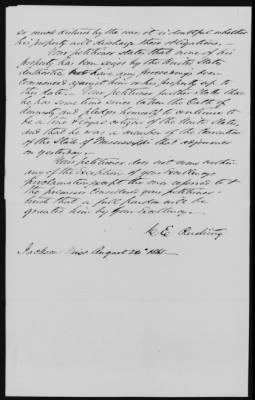 so much destroyed by the war, it is doubtful whether
his property will discharge these obligations. —
Your petitioner states that none of his
property has been seized by the United States
Authorities, nor have any proceedings been
commenced against him or his property up to
this date. Your petitioner further states that
he has some time since taken the Oath of
Amnesty and pledges himself to continue to
be a true & loyal citizen of the United States,
and that he was a member of the Convention
of the State of Mississippi that adjourned
on yesterday. —
Your petitioner does not come within
any of the Exceptions of your Excellency's
proclamation except the one referred to &
the premises Considered your petitioner
that a full pardon will be
granted him by Your Excellency. —
E
Jackson Miss August 26th